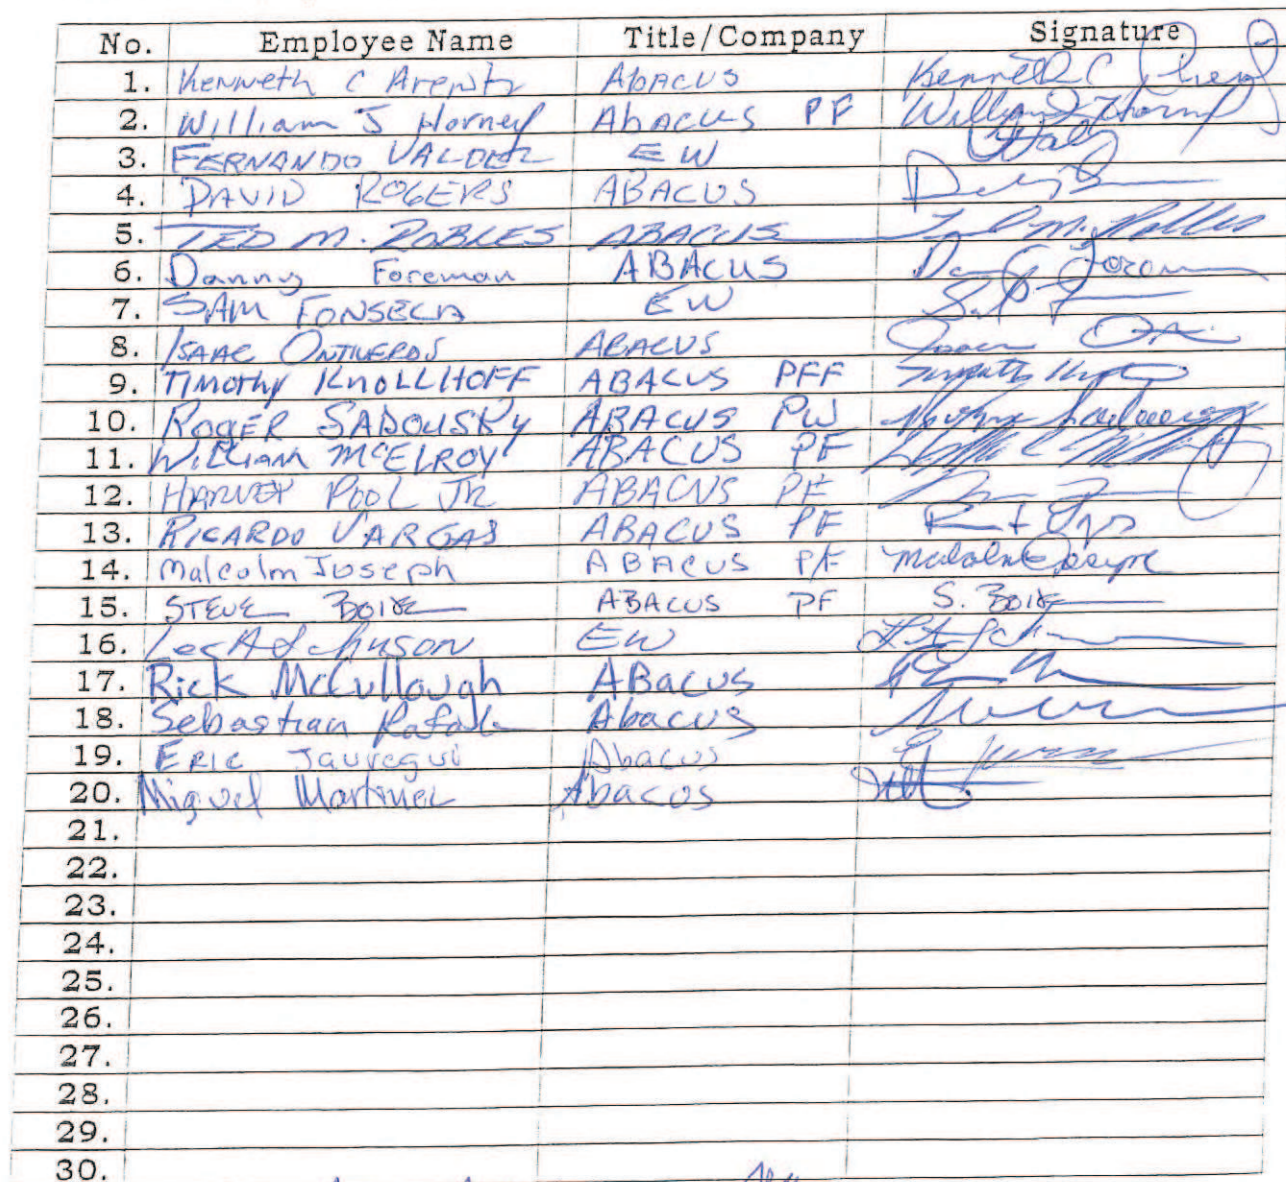 No. Employee Name Title/Company Signature
1. Kenneth C Arentz Abacus Kenneth C
2. William J Horney Abacus PF William J Horney
3. FERNANDO VALDEZ EW
4. DAVID ROGERS ABACUS
5. TED M. ROBLES ABACUS Ted M. Robles
6. Danny Foreman ABACUS Foreman
7. SAM FONSECA EW
8. ISAAC ONTIVEROS ABACUS Isaac
9. Timothy KnoLLHOFF ABACUS PFF Timothy
10. ROGER SADOUSKy ABACUS PW
11. William McELROY ABACUS PF
12. HARVEY POOL JR ABACUS PF
13. RICARDO VARGAS ABACUS PF
14. Malcolm Joseph ABACUS PF Malcolm Joseph
15. STEVE BOIKE ABACUS PF S. BOIKE
16. EW
17. Rick McCullough ABacus
18. Sebastian Abacus
19. ERIC Jauregui Abacus
20. Miguel Martinez Abacos
21.
22.
23.
24.
25.
26.
27.
28.
29.
30.